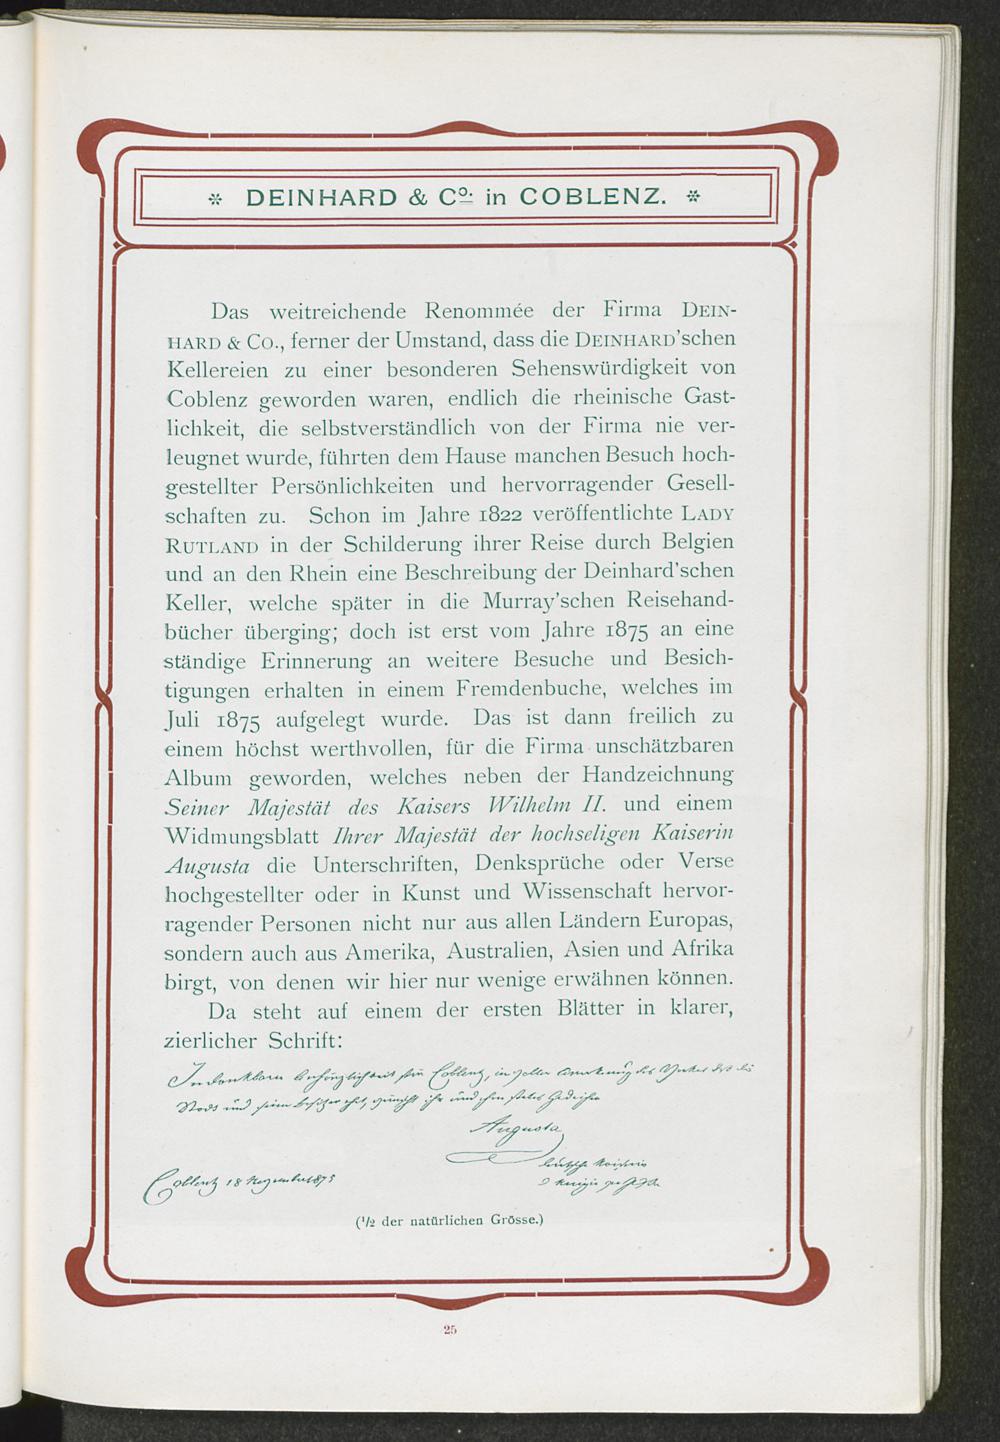 * DEINHARD & Co. in COBLENZ. *
Das weitreichende Renommée der Firma DEIN-
HARD & CO., ferner der Umstand, dass die DEINHARD'schen
Kellereien zu einer besonderen Sehenswürdigkeit von
Coblenz geworden waren, endlich die rheinische Gast-
lichkeit, die selbstverständlich von der Firma nie ver-
leugnet wurde, führten dem Hause manchen Besuch hoch-
gestellter Persönlichkeiten und hervorragender Gesell-
schaften zu. Schon im Jahre 1822 veröffentlichte LADY
RUTLAND in der Schilderung ihrer Reise durch Belgien
und an den Rhein eine Beschreibung der Deinhard'schen
Keller, welche später in die Murray'schen Reisehand-
bücher überging; doch ist erst vom Jahre 1875 an eine
ständige Erinnerung an weitere Besuche und Besich-
tigungen erhalten in einem Fremdenbuche, welches im
Juli 1875 aufgelegt wurde. Das ist dann freilich zu
einem höchst werthvollen, für die Firma unschätzbaren
Album geworden, welches neben der Handzeichnung
Seiner Majestät des Kaisers Wilhelm II. und einem
Widmungsblatt Ihrer Majestät der hochseligen Kaiserin
Augusta die Unterschriften, Denksprüche oder Verse
hochgestellter oder in Kunst und Wissenschaft hervor-
ragender Personen nicht nur aus allen Ländern Europas,
sondern auch aus Amerika, Australien, Asien und Afrika
birgt, von denen wir hier nur wenige erwähnen können.
Da steht auf einem der ersten Blätter in klarer,
zierlicher Schrift:
In dankbarer Anhänglichkeit für Coblenz, in voller Anerkennung des
Stadt und
Augusta
Coblenz 18 November 1875
(1/2 der natürlichen Grösse.)
25